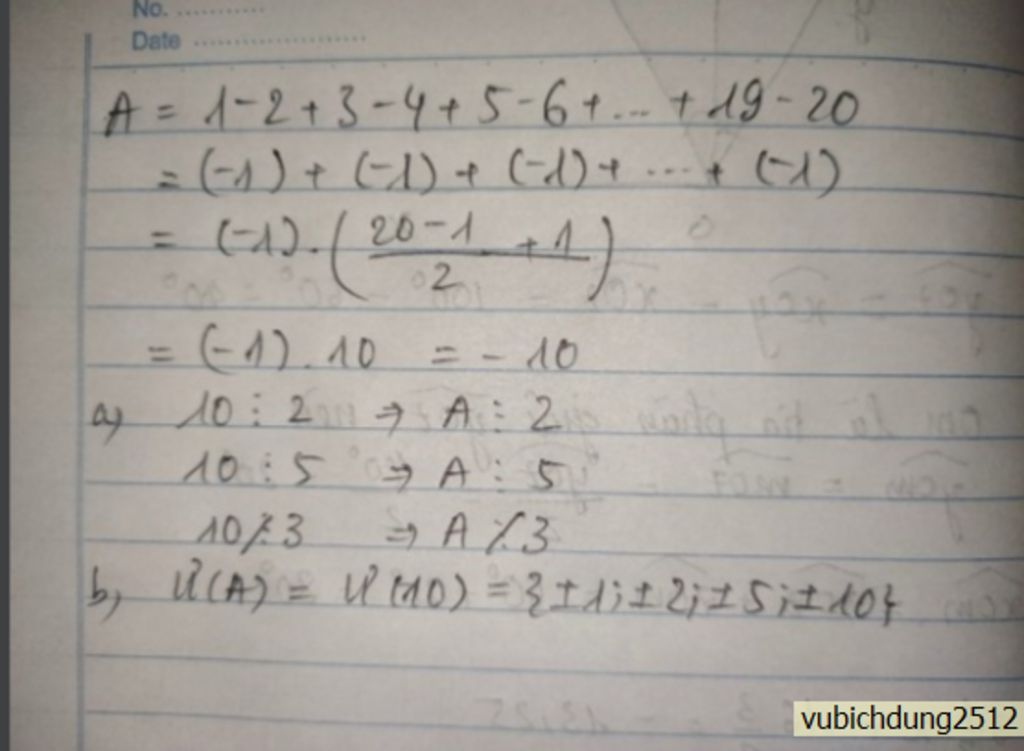 No. ............
Date ........................
A = 1-2+3-4+5-6+...+19-20
= (-1) + (-1) + (-1) + ... + (-1)
= (-1).((20-1+1)/2)
= (-1).10 = -10
a, 10⋮2 ⇒ A⋮2
10⋮5 ⇒ A⋮5
10⋮̸3 ⇒ A⋮̸3
b, Ư(A) = Ư(10) = {±1;±2;±5;±10}
vubichdung2512